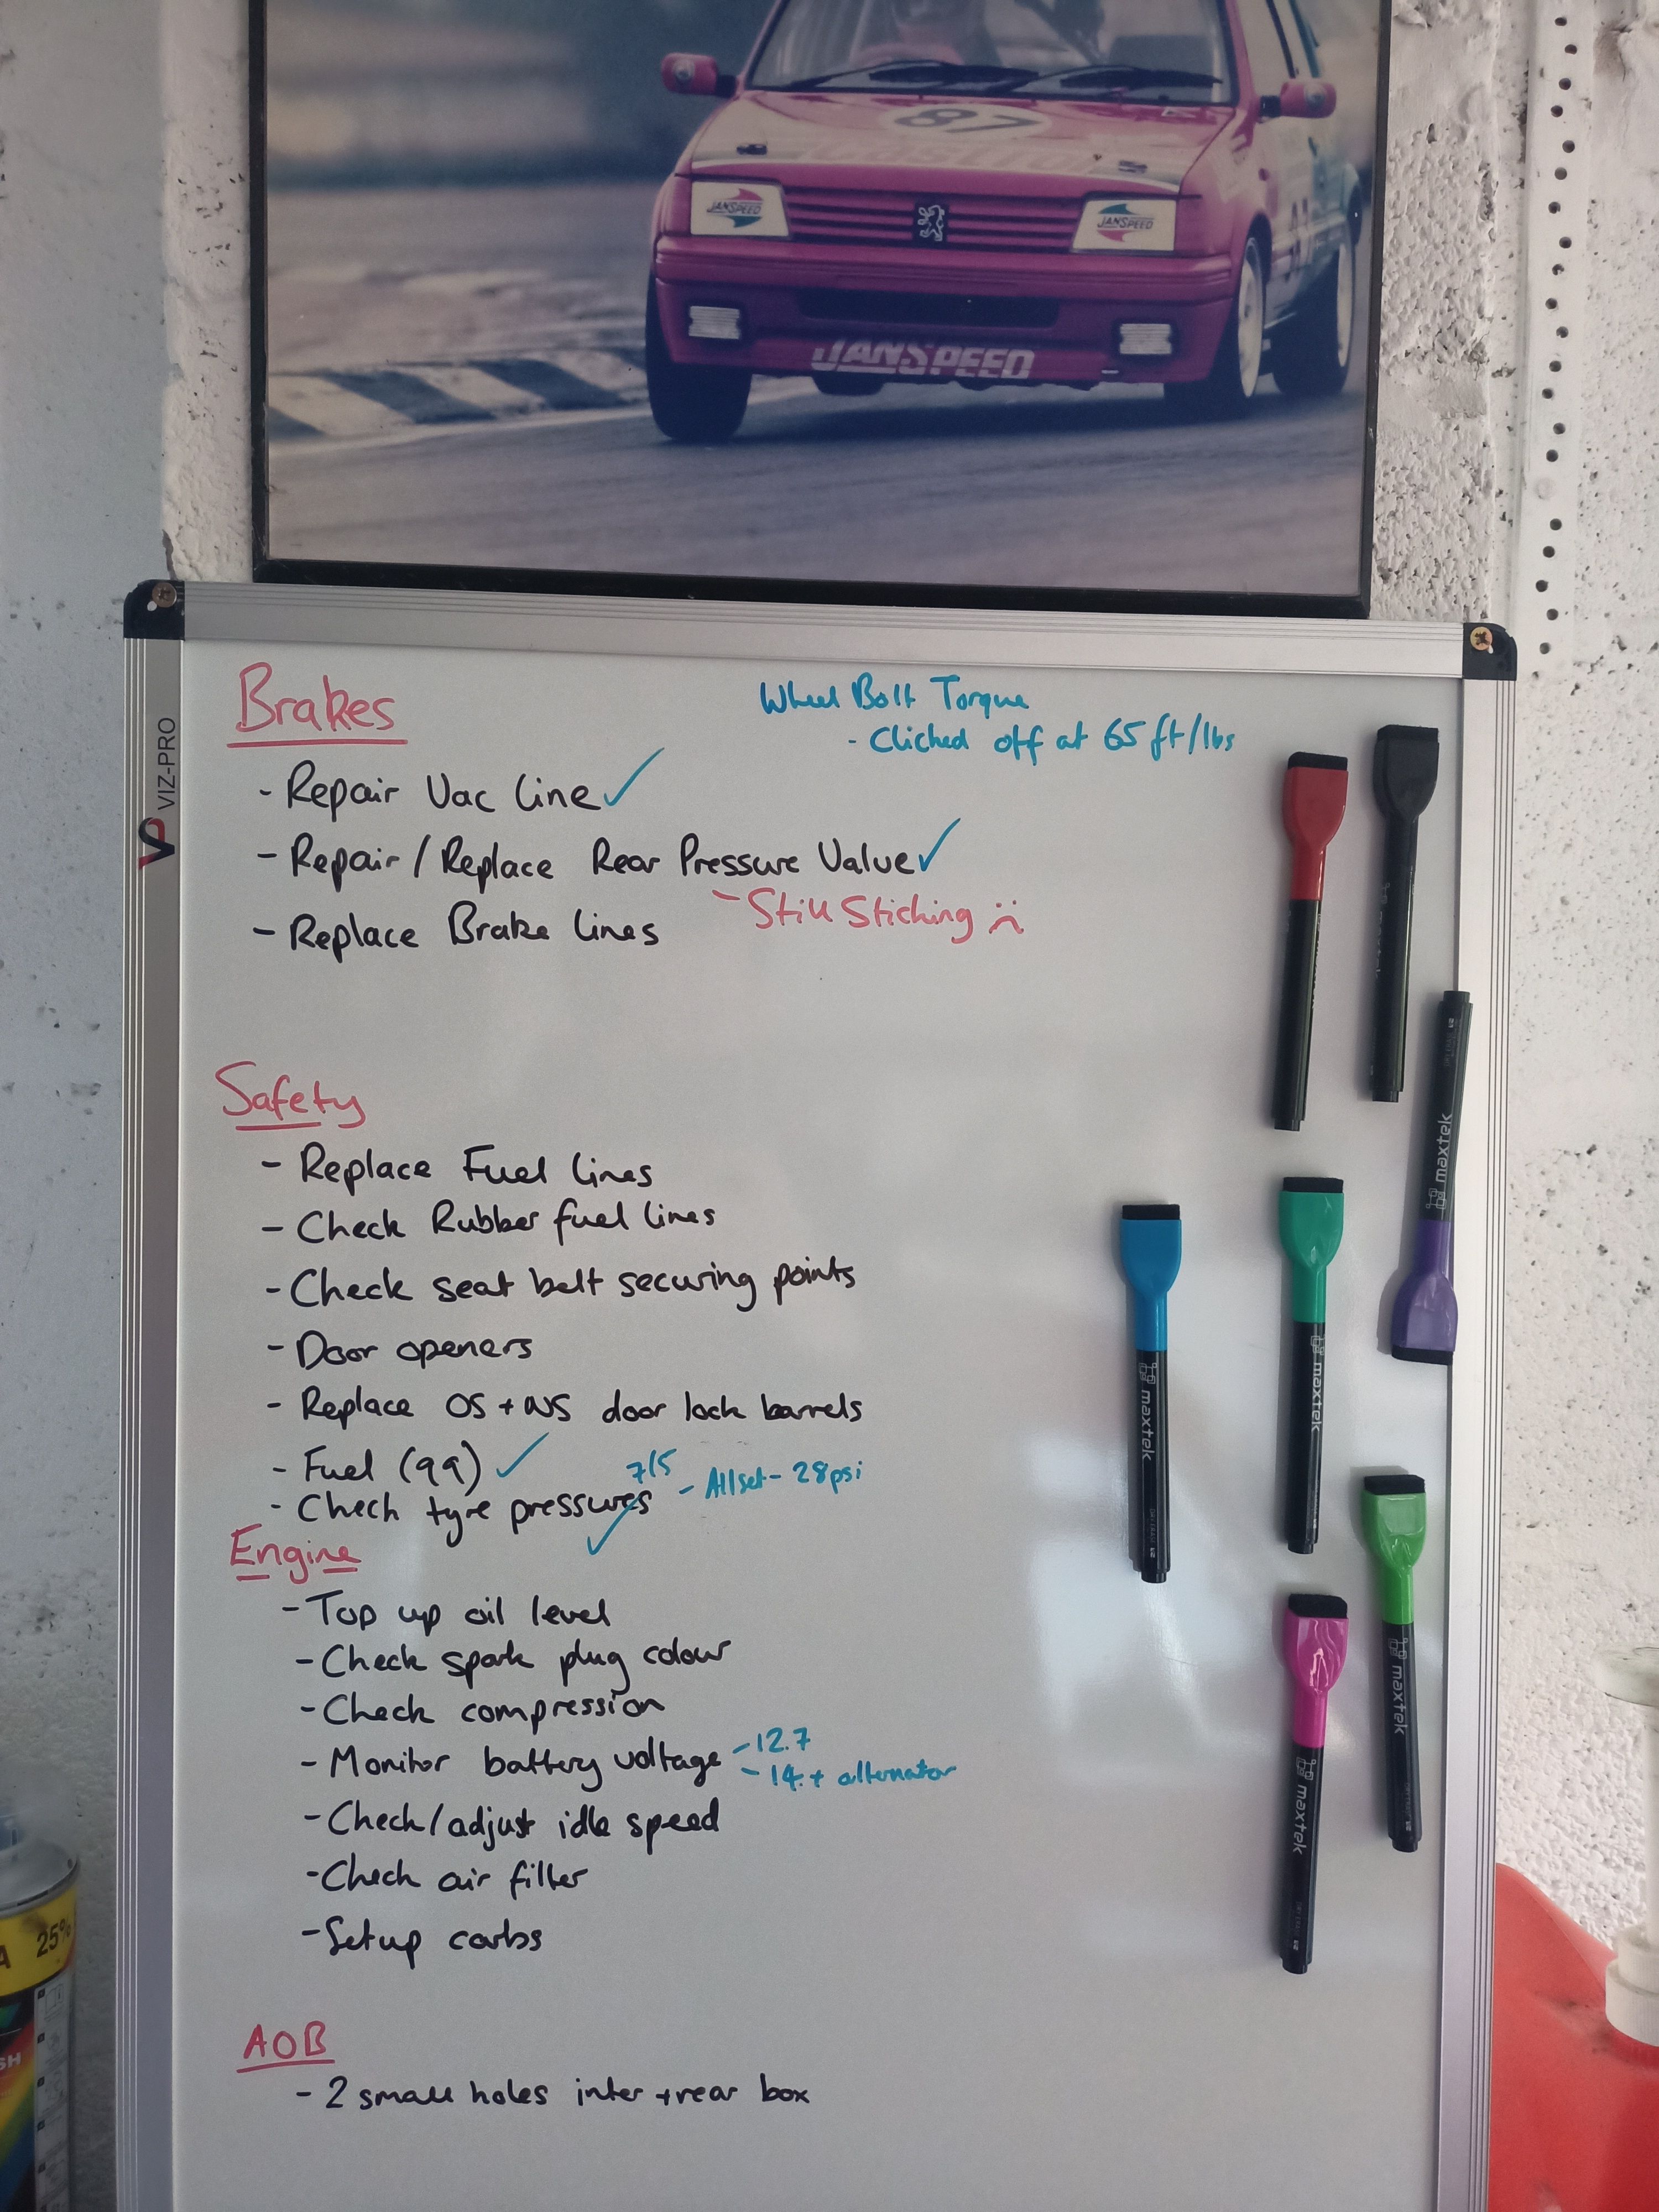 87
JANSPEED
JANSPEED
JANSPEED
VIZ-PRO
Brakes
Wheel Bolt Torque
- Clicked off at 65 ft/lbs
- Repair Vac Line ✓
- Repair / Replace Rear Pressure Value ✓
- Still Sticking :(
- Replace Brake Lines
Safety
- Replace Fuel Lines
- Check Rubber fuel lines
- Check seat belt securing points
- Door openers
- Replace OS + NS door lock barrels
- Fuel (99) ✓
- Check tyre pressures ✓ 7/5 - All set - 28psi
Engine
- Top up oil level
- Check spark plug colour
- Check compression
- Monitor battery voltage - 12.7
- 14.+ alternator
- Check/adjust idle speed
- Check air filter
- Setup carbs
AOB
- 2 small holes inter + rear box
maxtek
maxtek
maxtek
maxtek
maxtek
25%